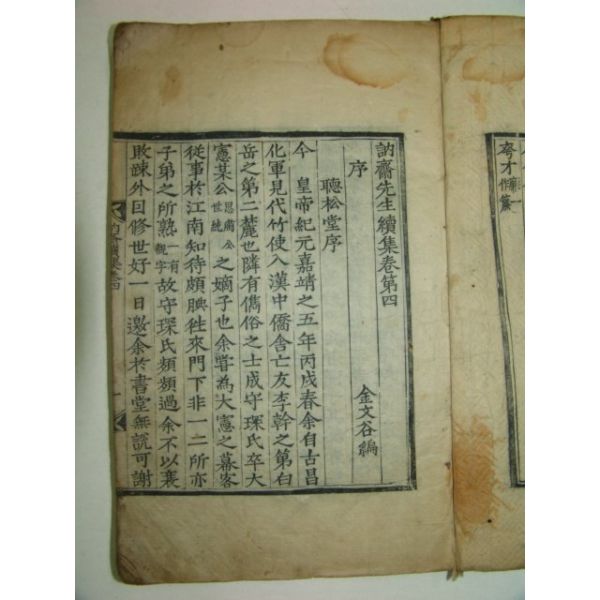 訥齋先生續集卷第四
序 金文谷編
聽松堂序
今 皇帝紀元嘉靖之五年丙戌春余自古昌
化軍見代竹使入漢中僑舍亡友李幹之第白
岳之第二麓也隣有儁俗之士成守琛氏卒大
憲某公思肅公世純之嫡子也余嘗為大憲之幕客
從事於江南知待頗腆徃來門下非一二所亦
子弟之所熟一有觀字故守琛氏頻頻過余不以衰
敗踈外因修世好一日邀余於書堂無說可謝
夸才
作纂